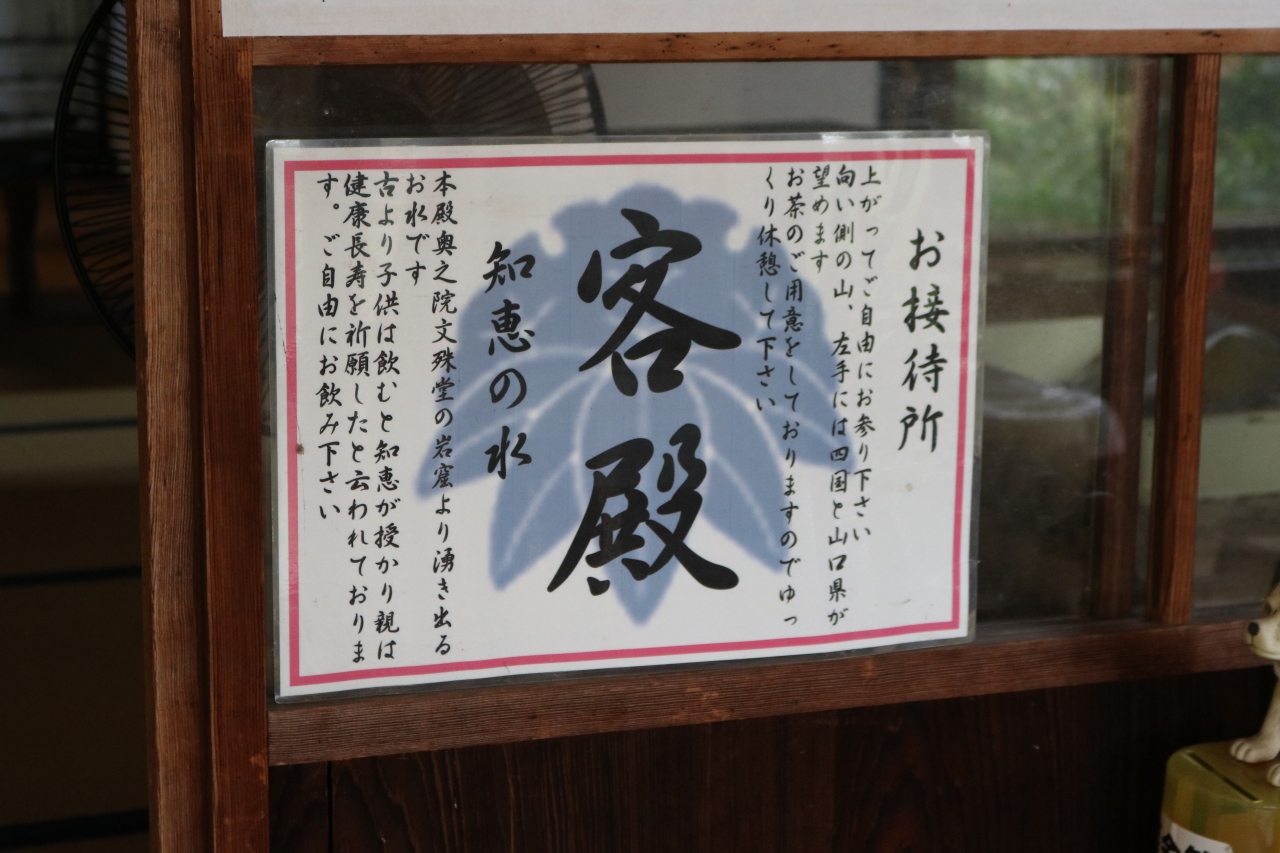 お接待所
上がってご自由にお参り下さい
向い側の山、左手には四国と山口県が
望めます
お茶のご用意をしておりますのでゆっ
くり休憩して下さい
客殿
知恵の水
本殿奥之院文殊堂の岩窟より湧き出る
お水です
古より子供は飲むと知恵が授かり親は
健康長寿を祈願したと云われておりま
す。ご自由にお飲み下さい